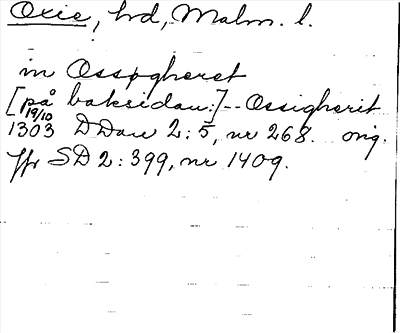 Oxie, hd, Malm. l.
in Ossøgheret
[på baksidan:]-- Ossigherit
19/10
1303 DDan 2:5, nr 268. orig.
Jfr SD 2:399, nr 1409.